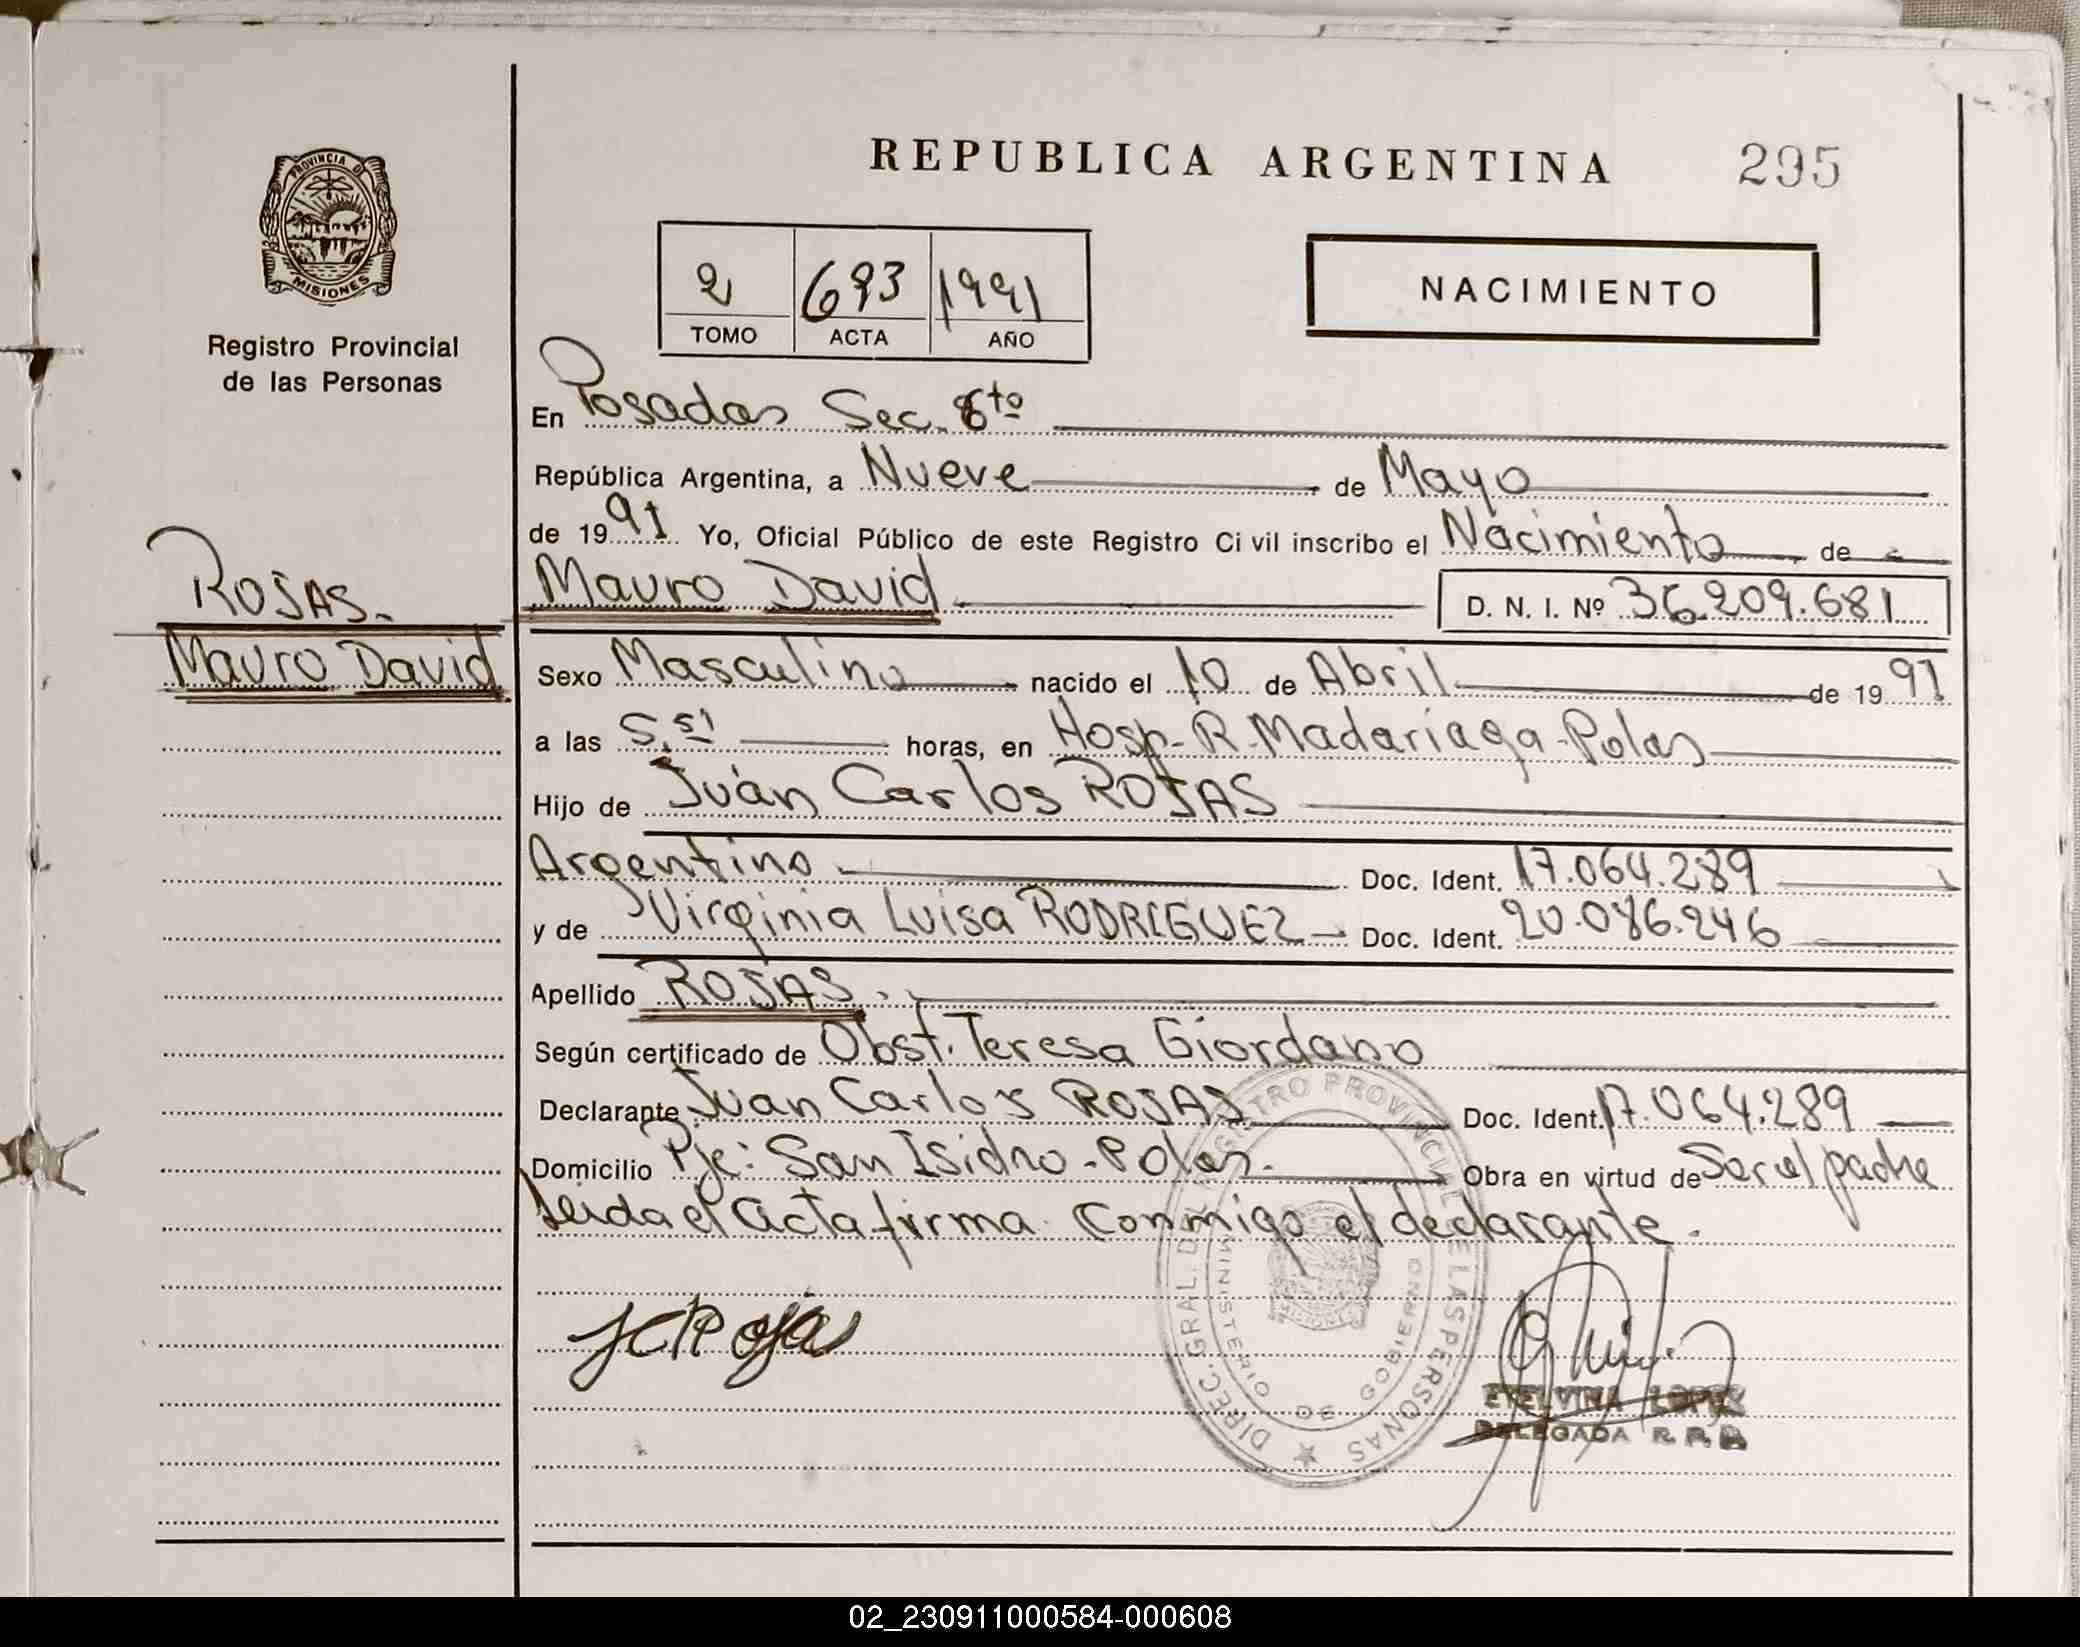 REPUBLICA ARGENTINA
295
PROVINCIA DE
MISIONES
Registro Provincial
de las Personas
2 693 1991
TOMO ACTA AÑO
NACIMIENTO
En Posadas Sec. 6to
República Argentina, a Nueve de Mayo
de 1991 Yo, Oficial Público de este Registro Civil inscribo el Nacimiento de
ROJAS.
Mauro David
Mauro David D. N. I. Nº 36.209.681
Sexo Masculino nacido el 10 de Abril de 1991
a las 5.51 horas, en Hosp. R. Madariaga-Pdas
Hijo de Juan Carlos ROJAS
Argentino Doc. Ident. 17.064.289
y de Virginia Luisa RODRIGUEZ Doc. Ident. 20.086.246
Apellido ROJAS.
Según certificado de Obst. Teresa Giordano
Declarante Juan Carlos ROJAS Doc. Ident. 17.064.289
Domicilio Pje: San Isidro-Pdas. Obra en virtud de Ser el padre
Leida el acta firma conmigo el declarante.
JCRojas
DIREC. GRAL. DEL REGISTRO PROVINCIAL DE LAS PERSONAS
MINISTERIO DE GOBIERNO
ETELVINA LOPEZ
DELEGADA R. P. P.
02_230911000584-000608